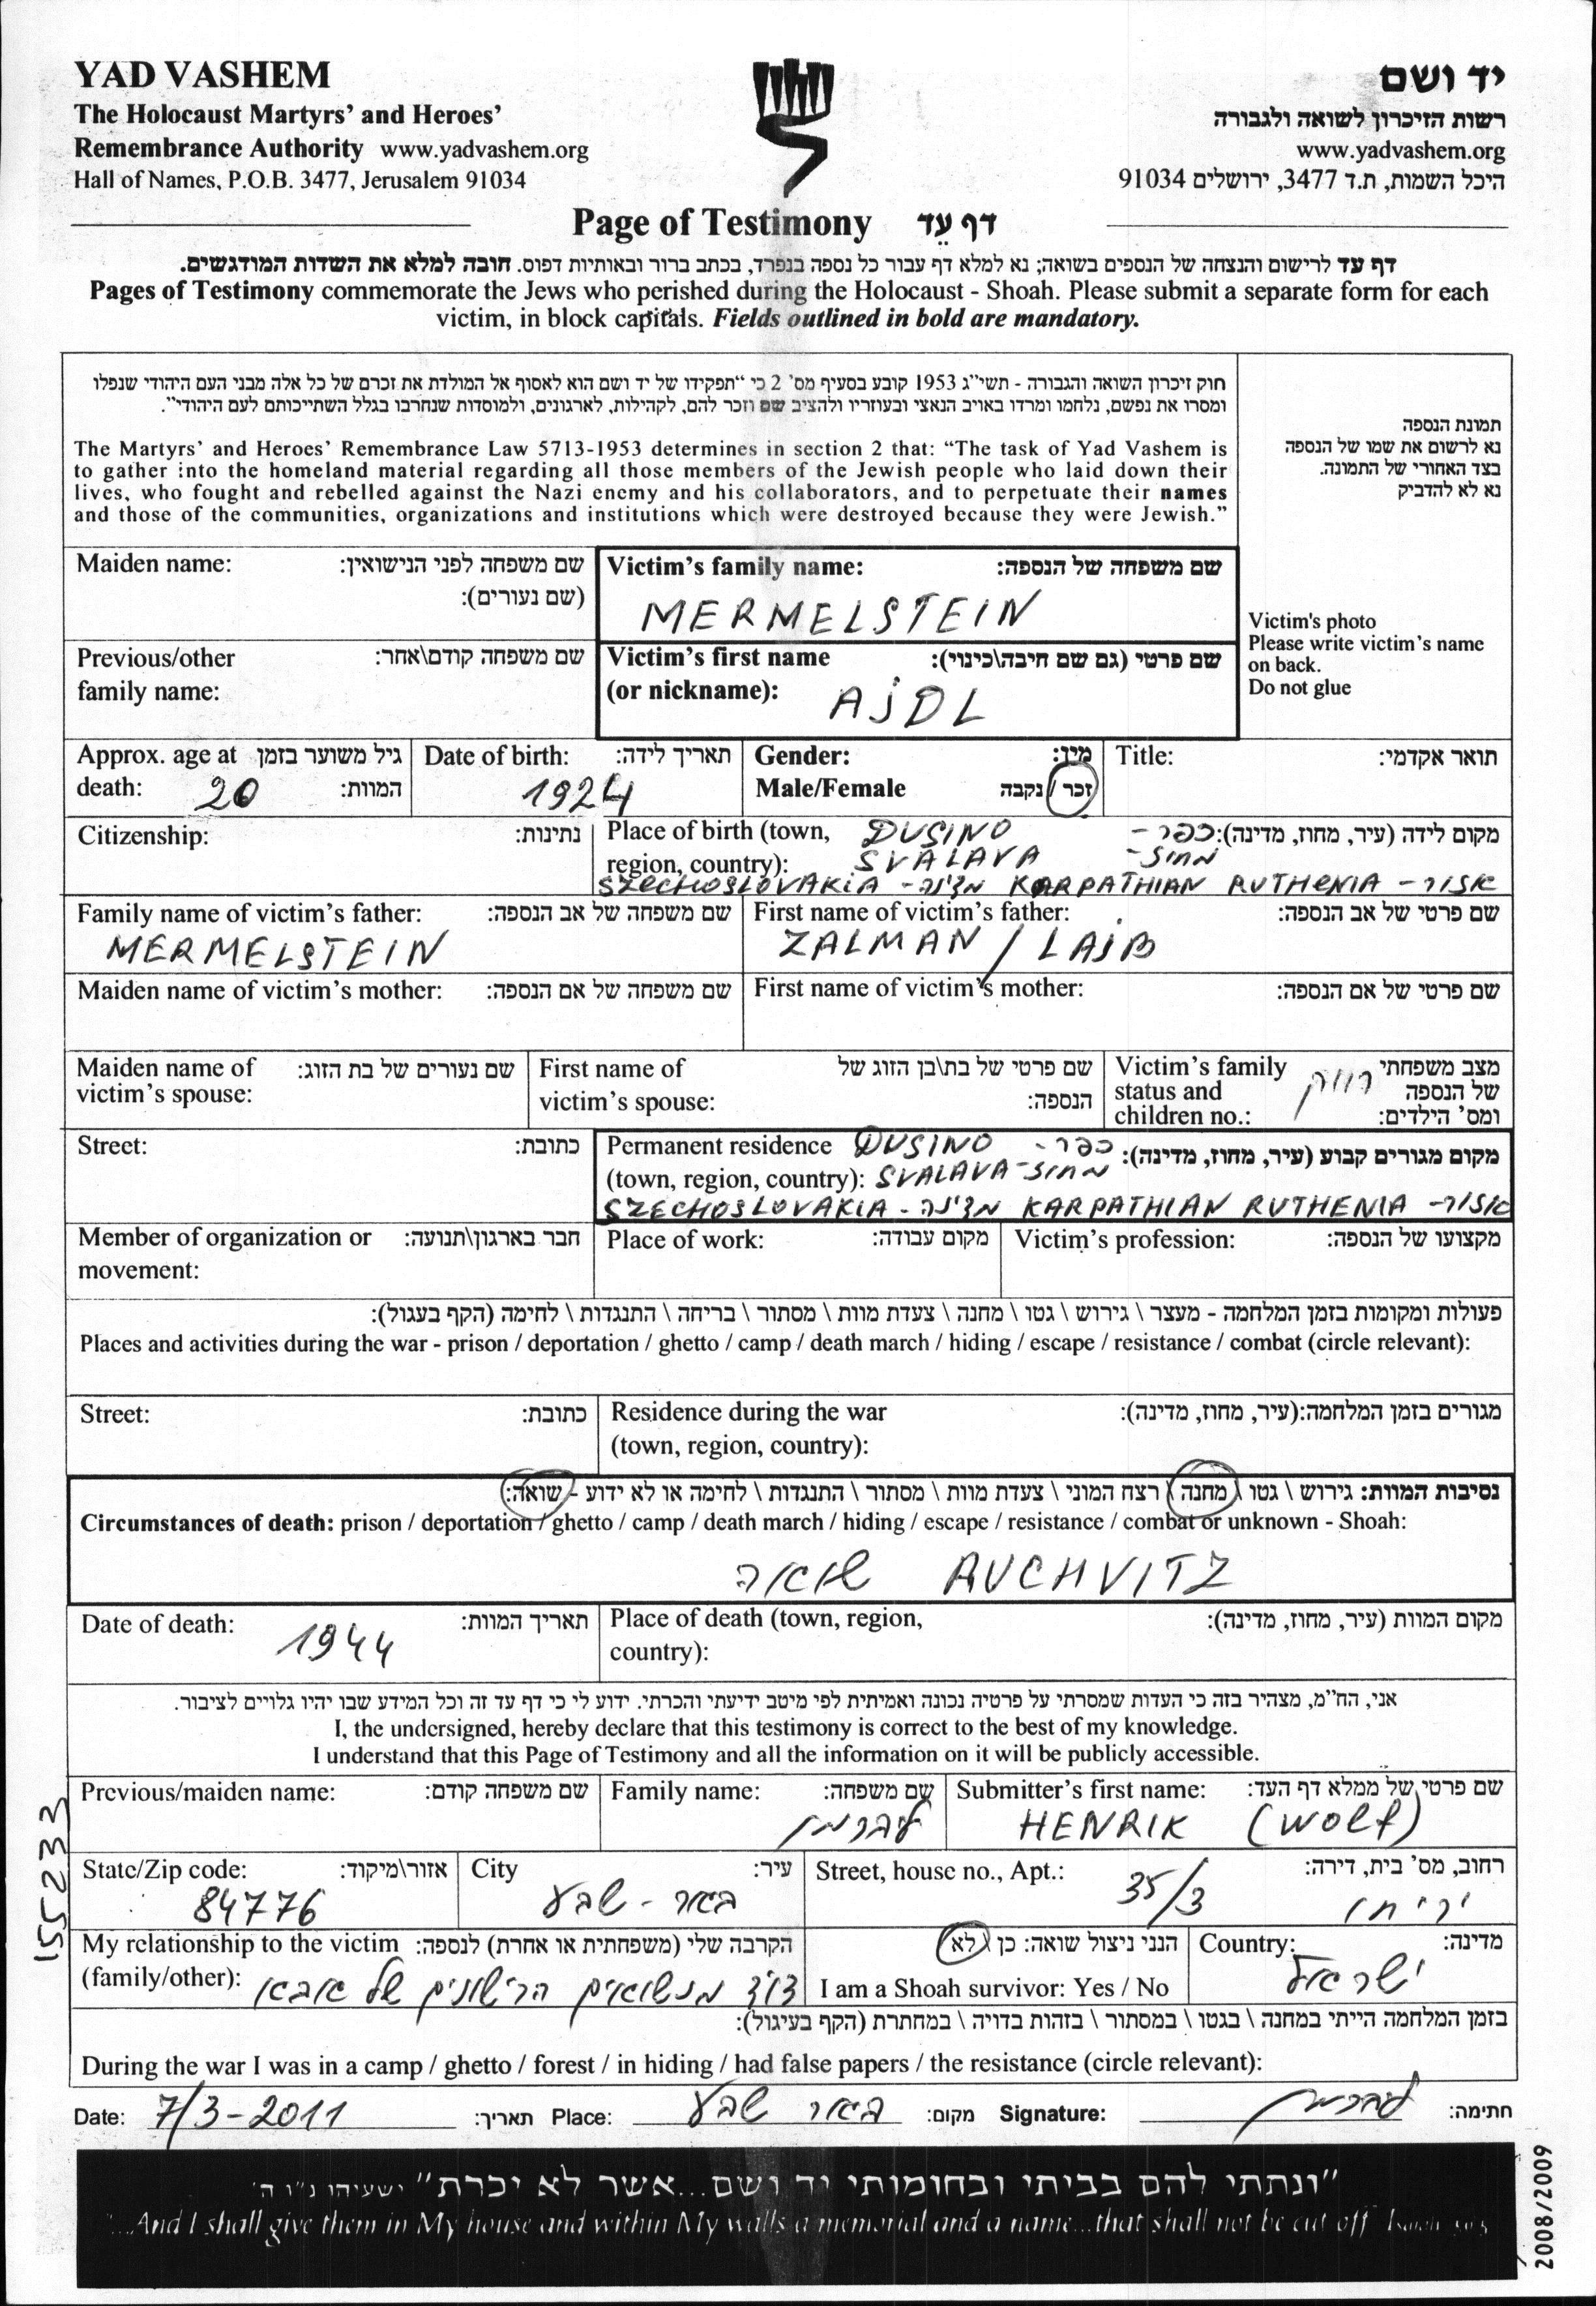 YAD VASHEM
The Holocaust Martyrs' and Heroes'
Remembrance Authority www.yadvashem.org
Hall of Names, P.O.B. 3477, Jerusalem 91034
יד ושם
רשות הזיכרון לשואה ולגבורה
www.yadvashem.org
היכל השמות, ת.ד 3477, ירושלים 91034
Page of Testimony דף עֵד
דף עד לרישום והנצחה של הנספים בשואה; נא למלא דף עבור כל נספה בנפרד, בכתב ברור ובאותיות דפוס. חובה למלא את השדות המודגשים.
Pages of Testimony commemorate the Jews who perished during the Holocaust - Shoah. Please submit a separate form for each
victim, in block capitals. Fields outlined in bold are mandatory.
חוק זיכרון השואה והגבורה - תשי"ג 1953 קובע בסעיף מס' 2 כי "תפקידו של יד ושם הוא לאסוף אל המולדת את זכרם של כל אלה מבני העם היהודי שנפלו
ומסרו את נפשם, נלחמו ומרדו באויב הנאצי ובעוזריו ולהציב שם וזכר להם, לקהילות, לארגונים, ולמוסדות שנחרבו בגלל השתייכותם לעם היהודי".
The Martyrs' and Heroes' Remembrance Law 5713-1953 determines in section 2 that: "The task of Yad Vashem is
to gather into the homeland material regarding all those members of the Jewish people who laid down their
lives, who fought and rebelled against the Nazi enemy and his collaborators, and to perpetuate their names
and those of the communities, organizations and institutions which were destroyed because they were Jewish."
תמונת הנספה
נא לרשום את שמו של הנספה
בצד האחורי של התמונה.
נא לא להדביק
Victim's photo
Please write victim's name
on back.
Do not glue
Maiden name: שם משפחה לפני הנישואין:
(שם נעורים):
Victim's family name: שם משפחה של הנספה:
MERMELSTEIN
Previous/other שם משפחה קודם\אחר:
family name:
Victim's first name שם פרטי (גם שם חיבה\כינוי):
(or nickname): AJDL
Approx. age at גיל משוער בזמן
death: 20 המוות:
Date of birth: תאריך לידה:
1924
Gender: מין:
Male/Female זכר / נקבה
Title: תואר אקדמי:
Citizenship: נתינות:
Place of birth (town, DUSINO כפר - מקום לידה (עיר, מחוז, מדינה):
region, country): SVALAVA מחוז-
SZECHOSLOVAKIA - מדינה KARPATHIAN RUTHENIA - אזור
Family name of victim's father: שם משפחה של אב הנספה:
MERMELSTEIN
First name of victim's father: שם פרטי של אב הנספה:
ZALMAN / LAJB
Maiden name of victim's mother: שם משפחה של אם הנספה:
First name of victim's mother: שם פרטי של אם הנספה:
Maiden name of שם נעורים של בת הזוג:
victim's spouse:
First name of שם פרטי של בת\בן הזוג של
victim's spouse: הנספה:
Victim's family מצב משפחתי
status and רווק של הנספה
children no.: ומס' הילדים:
Street: כתובת:
Permanent residence DUSINO - כפר מקום מגורים קבוע (עיר, מחוז, מדינה):
(town, region, country): SVALAVA - מחוז
SZECHOSLOVAKIA - מדינה KARPATHIAN RUTHENIA - אזור
Member of organization or חבר בארגון\תנועה:
movement:
Place of work: מקום עבודה:
Victim's profession: מקצועו של הנספה:
פעולות ומקומות בזמן המלחמה - מעצר \ גירוש \ גטו \ מחנה \ צעדת מוות \ מסתור \ בריחה \ התנגדות \ לחימה (הקף בעגול):
Places and activities during the war - prison / deportation / ghetto / camp / death march / hiding / escape / resistance / combat (circle relevant):
Street: כתובת:
Residence during the war מגורים בזמן המלחמה:(עיר, מחוז, מדינה):
(town, region, country):
נסיבות המוות: גירוש \ גטו \ מחנה \ רצח המוני \ צעדת מוות \ מסתור \ התנגדות \ לחימה או לא ידוע - שואה:
Circumstances of death: prison / deportation / ghetto / camp / death march / hiding / escape / resistance / combat or unknown - Shoah:
שואה AUCHVITZ
Date of death: תאריך המוות:
1944
Place of death (town, region, מקום המוות (עיר, מחוז, מדינה):
country):
אני, הח"מ, מצהיר בזה כי העדות שמסרתי על פרטיה נכונה ואמיתית לפי מיטב ידיעתי והכרתי. ידוע לי כי דף עד זה וכל המידע שבו יהיו גלויים לציבור.
I, the undersigned, hereby declare that this testimony is correct to the best of my knowledge.
I understand that this Page of Testimony and all the information on it will be publicly accessible.
Previous/maiden name: שם משפחה קודם:
Family name: שם משפחה:
ליברמן
Submitter's first name: שם פרטי של ממלא דף העד:
HENRIK (WOLF)
State/Zip code: אזור\מיקוד:
84776
City עיר:
באר-שבע
Street, house no., Apt.: רחוב, מס' בית, דירה:
35/3 יריחו
My relationship to the victim הקרבה שלי (משפחתית או אחרת) לנספה:
(family/other): דוד מנשואים הרישונים של אבא
הנני ניצול שואה: כן \ לא
I am a Shoah survivor: Yes / No
Country: מדינה:
ישראל
בזמן המלחמה הייתי במחנה \ בגטו \ במסתור \ בזהות בדויה \ במחתרת (הקף בעיגול):
During the war I was in a camp / ghetto / forest / in hiding / had false papers / the resistance (circle relevant):
Date: 7/3-2011 תאריך: Place: באר שבע מקום: Signature: ליברמן חתימה:
"ונתתי להם בביתי ובחומותי יד ושם...אשר לא יכרת" ישעיהו נ"ו ה'
"...And I shall give them in My house and within My walls a memorial and a name...that shall not be cut off" Isaiah 56:5
155233
2008/2009